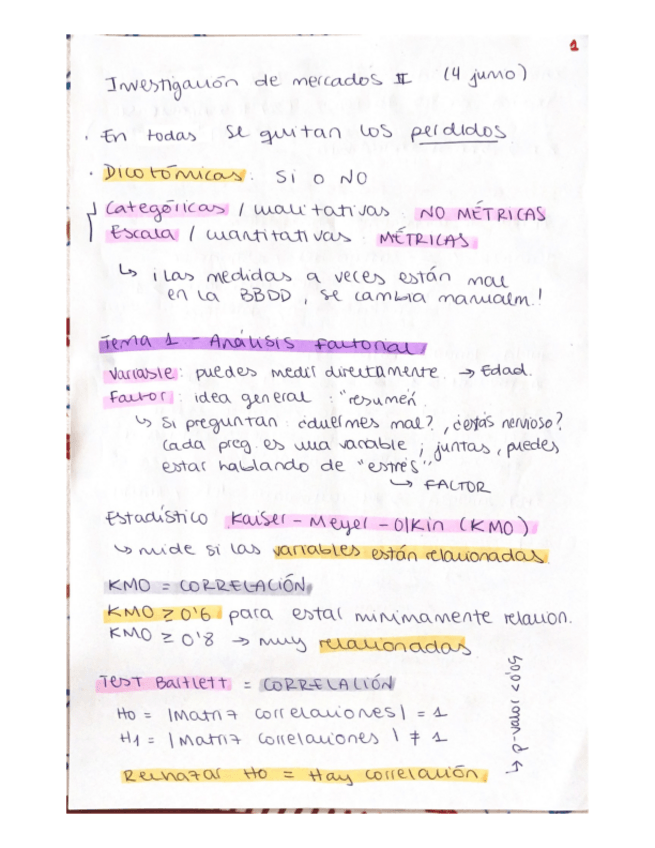 1
Investigación de mercados II (4 junio)
· En todas se quitan los perdidos
· Dicotómicas: Si o NO
Categóricas / cualitativas : NO MÉTRICAS
Escala / cuantitativas : MÉTRICAS
↳ ¡las medidas a veces están mal
en la BBDD, se cambia manualm.!
Tema 1 - Análisis factorial
Variable: puedes medir directamente. → Edad.
Factor: idea general : "resumen.
↳ Si preguntan: ¿duermes mal?, ¿estás nervioso?
Cada preg. es una variable; juntas, puedes
estar hablando de "estrés"
↳ FACTOR
Estadístico Kaiser-Meyer-Olkin (KMO)
↳ mide si las variables están relacionadas
KMO = CORRELACIÓN
KMO ≥ 0'6 para estar minimamente relacion.
KMO ≥ 0'8 → muy relacionadas
TEST Bartlett = CORRELACIÓN
H0 = |Matriz correlaciones| = 1
H1 = |Matriz correlaciones| ≠ 1
↳ p-valor < 0,05
Rechazar H0 = Hay correlación